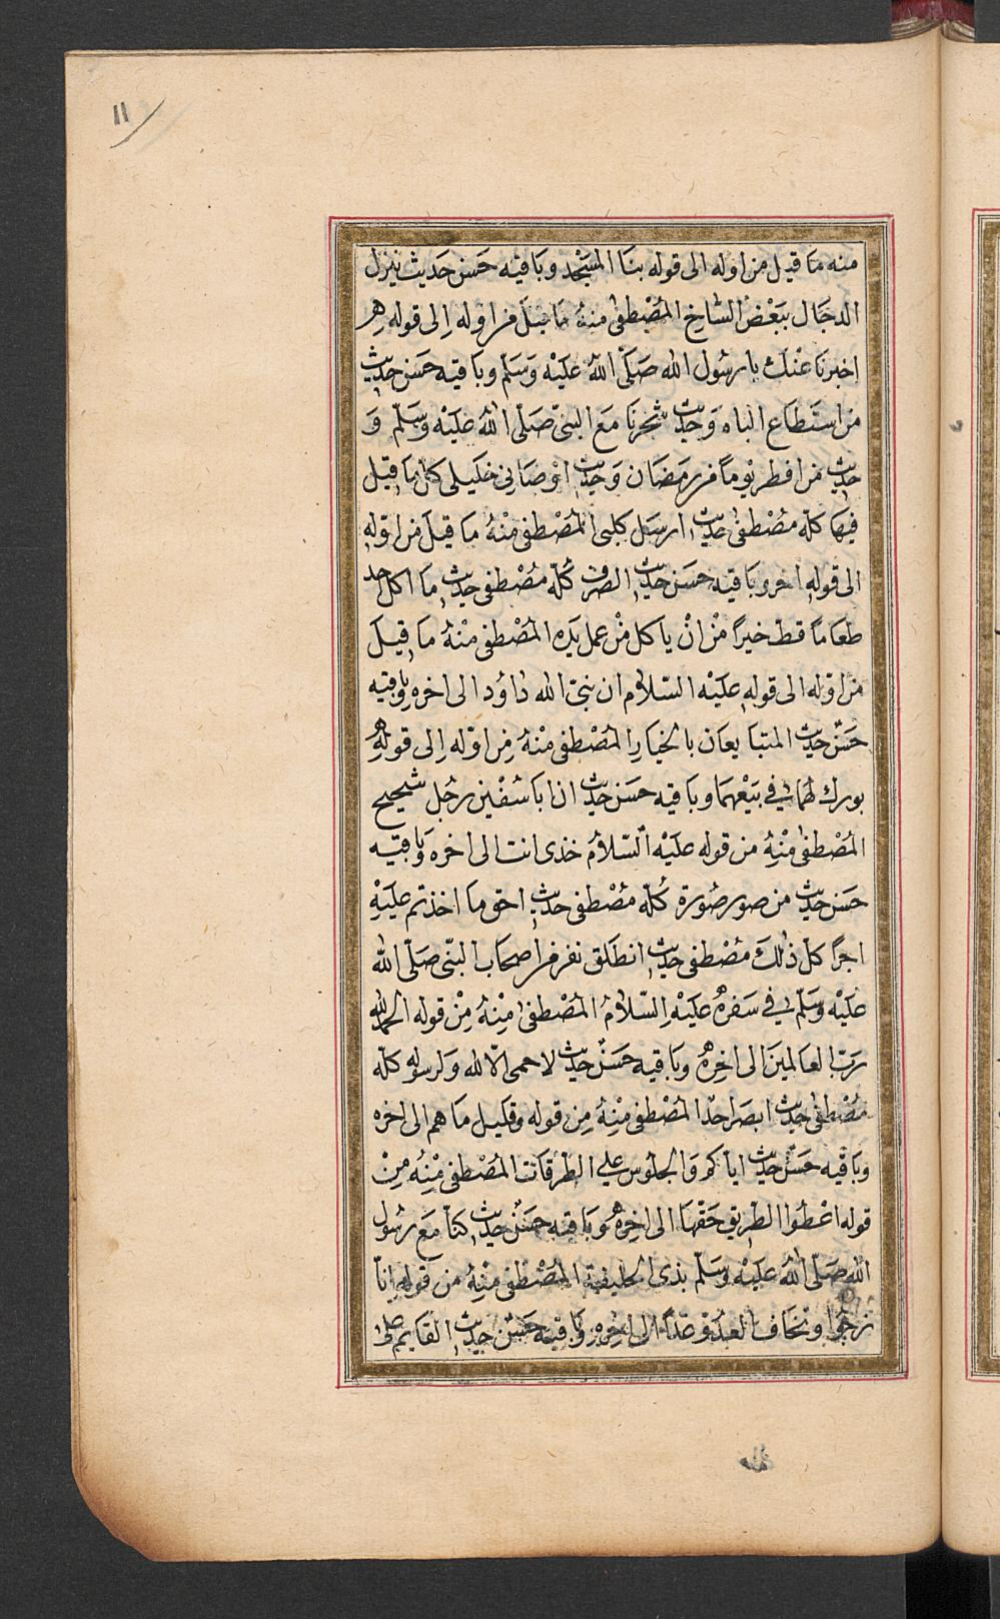 ١١
منه ما قيل من اوله الى قوله بنا المسجد وباقيه حسن حديث ينزل
الدجال ببعض السباخ المصطفى منه ما قيل من اوله الى قوله هر
اخبرنا عنك يا رسول الله صلى الله عليه وسلم وباقيه حسن حديث
من استطاع الباه وحديث سحرنا مع النبى صلى الله عليه وسلم و
حديث من افطر يوما من رمضان وحديث اوصانى خليلى كل ما قيل
فيها كله مصطفى حديث ارسل كلبى المصطفى منه ما قيل من اوله
الى قوله اخر وباقيه حسن حديث الصرف كله مصطفى حديث ما اكل احد
طعاما قط خيرا من ان ياكل من عمل يده المصطفى منه ما قيل
من اوله الى قوله عليه السلام ان نبى الله داؤد الى اخره وباقيه
حسن حديث المتبايعان بالخيار المصطفى منه من اوله الى قوله
بورك لهما فى بيعهما وباقيه حسن حديث ان ابا سفين رجل شحيح
المصطفى منه من قوله عليه السلام خذى انت الى اخره وباقيه
حسن حديث من صور صورة كله مصطفى حديث احق ما اخذتم عليه
اجرا كل ذلك مصطفى حديث انطلق نفر من اصحاب النبى صلى الله
عليه وسلم فى سفره عليه السلام المصطفى منه من قوله الحمد لله
رب العالمين الى اخره وباقيه حسن حديث لا حمى الا لله ولرسوله كله
مصطفى حديث ابصر احدا المصطفى منه من قوله وقليل ما هم الى اخره
وباقيه حسن حديث اياكم والجلوس على الطرقات المصطفى منه من
قوله اعطوا الطريق حقها الى اخره وباقيه حسن حديث كنا مع رسول
الله صلى الله عليه وسلم بذى الحليفة المصطفى منه من قوله انا
نرجوا ونخاف العدو غدا الى اخره وباقيه حسن حديث القايم على